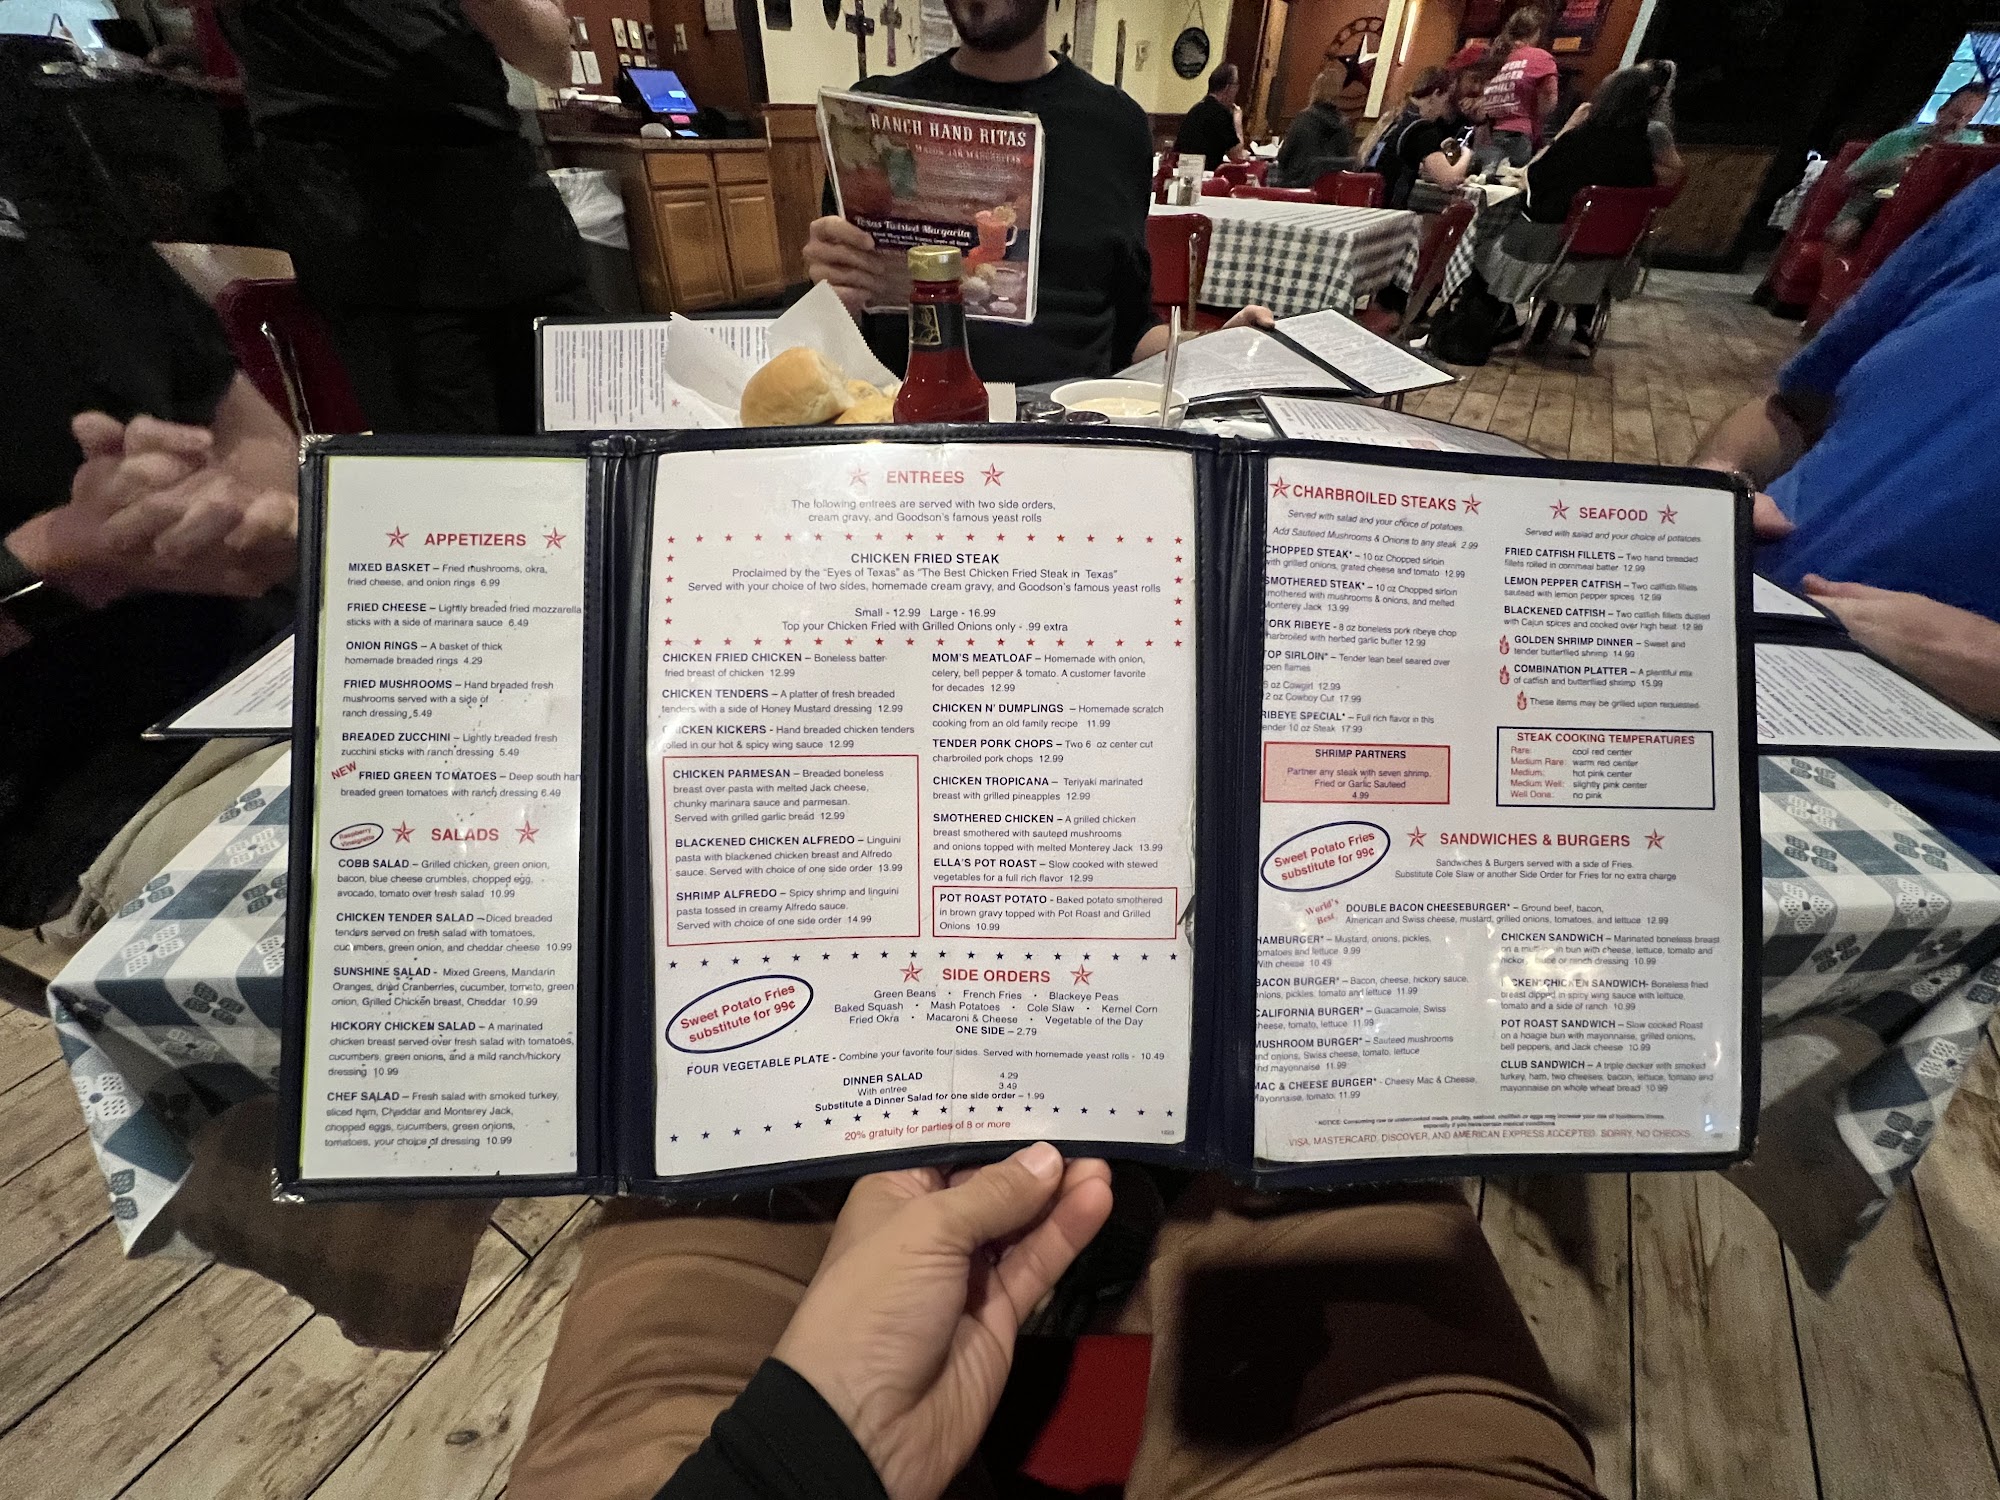 RANCH HAND RITAS
MASON JAR MARGARITAS
Texas Twisted Margarita
APPETIZERS
MIXED BASKET – Fried mushrooms, okra,
fried cheese, and onion rings 6.99
FRIED CHEESE – Lightly breaded fried mozzarella
sticks with a side of marinara sauce 6.49
ONION RINGS – A basket of thick
homemade breaded rings 4.29
FRIED MUSHROOMS – Hand breaded fresh
mushrooms served with a side of
ranch dressing 5.49
BREADED ZUCCHINI – Lightly breaded fresh
zucchini sticks with ranch dressing 5.49
NEW
FRIED GREEN TOMATOES – Deep south han
breaded green tomatoes with ranch dressing 6.49
Raspberry
Vinaigrette
SALADS
COBB SALAD – Grilled chicken, green onion,
bacon, blue cheese crumbles, chopped egg,
avocado, tomato over fresh salad 10.99
CHICKEN TENDER SALAD –Diced breaded
tenders served on fresh salad with tomatoes,
cucumbers, green onion, and cheddar cheese 10.99
SUNSHINE SALAD - Mixed Greens, Mandarin
Oranges, dried Cranberries, cucumber, tomato, green
onion, Grilled Chicken breast, Cheddar 10.99
HICKORY CHICKEN SALAD – A marinated
chicken breast served over fresh salad with tomatoes,
cucumbers, green onions, and a mild ranch/hickory
dressing 10.99
CHEF SALAD – Fresh salad with smoked turkey,
sliced ham, Cheddar and Monterey Jack,
chopped eggs, cucumbers, green onions,
tomatoes, your choice of dressing 10.99
ENTREES
The following entrees are served with two side orders,
cream gravy, and Goodson's famous yeast rolls
CHICKEN FRIED STEAK
Proclaimed by the "Eyes of Texas" as "The Best Chicken Fried Steak in Texas"
Served with your choice of two sides, homemade cream gravy, and Goodson's famous yeast rolls
Small - 12.99 Large - 16.99
Top your Chicken Fried with Grilled Onions only - .99 extra
CHICKEN FRIED CHICKEN – Boneless batter
fried breast of chicken 12.99
CHICKEN TENDERS – A platter of fresh breaded
tenders with a side of Honey Mustard dressing 12.99
CHICKEN KICKERS - Hand breaded chicken tenders
rolled in our hot & spicy wing sauce 12.99
CHICKEN PARMESAN – Breaded boneless
breast over pasta with melted Jack cheese,
chunky marinara sauce and parmesan.
Served with grilled garlic bread 12.99
BLACKENED CHICKEN ALFREDO – Linguini
pasta with blackened chicken breast and Alfredo
sauce. Served with choice of one side order 13.99
SHRIMP ALFREDO – Spicy shrimp and linguini
pasta tossed in creamy Alfredo sauce.
Served with choice of one side order 14.99
MOM'S MEATLOAF – Homemade with onion,
celery, bell pepper & tomato. A customer favorite
for decades 12.99
CHICKEN N' DUMPLINGS – Homemade scratch
cooking from an old family recipe 11.99
TENDER PORK CHOPS – Two 6 oz center cut
charbroiled pork chops 12.99
CHICKEN TROPICANA – Teriyaki marinated
breast with grilled pineapples 12.99
SMOTHERED CHICKEN – A grilled chicken
breast smothered with sauteed mushrooms
and onions topped with melted Monterey Jack 13.99
ELLA'S POT ROAST – Slow cooked with stewed
vegetables for a full rich flavor 12.99
POT ROAST POTATO - Baked potato smothered
in brown gravy topped with Pot Roast and Grilled
Onions 10.99
Sweet Potato Fries
substitute for 99¢
SIDE ORDERS
Green Beans • French Fries • Blackeye Peas
Baked Squash • Mash Potatoes • Cole Slaw • Kernel Corn
Fried Okra • Macaroni & Cheese • Vegetable of the Day
ONE SIDE – 2.79
FOUR VEGETABLE PLATE - Combine your favorite four sides. Served with homemade yeast rolls - 10.49
DINNER SALAD 4.29
With entree 3.49
Substitute a Dinner Salad for one side order – 1.99
20% gratuity for parties of 8 or more
CHARBROILED STEAKS
Served with salad and your choice of potatoes.
Add Sauteed Mushrooms & Onions to any steak 2.99
CHOPPED STEAK* – 10 oz Chopped sirloin
with grilled onions, grated cheese and tomato 12.99
SMOTHERED STEAK* – 10 oz Chopped sirloin
smothered with mushrooms & onions, and melted
Monterey Jack 13.99
ORK RIBEYE - 8 oz boneless pork ribeye chop
harbroiled with herbed garlic butter 12.99
TOP SIRLOIN* – Tender lean beef seared over
open flames
6 oz Cowgirl 12.99
2 oz Cowboy Cut 17.99
RIBEYE SPECIAL* – Full rich flavor in this
ender 10 oz Steak 17.99
SHRIMP PARTNERS
Partner any steak with seven shrimp.
Fried or Garlic Sauteed
4.99
SEAFOOD
Served with salad and your choice of potatoes.
FRIED CATFISH FILLETS – Two hand breaded
fillets rolled in cornmeal batter 12.99
LEMON PEPPER CATFISH – Two catfish fillets
sauteed with lemon pepper spices 12.99
BLACKENED CATFISH – Two catfish fillets dusted
with Cajun spices and cooked over high heat 12.99
GOLDEN SHRIMP DINNER – Sweet and
tender butterflied shrimp 14.99
COMBINATION PLATTER – A plentiful mix
of catfish and butterflied shrimp 15.99
These items may be grilled upon requested.
STEAK COOKING TEMPERATURES
Rare: cool red center
Medium Rare: warm red center
Medium: hot pink center
Medium Well: slightly pink center
Well Done: no pink
Sweet Potato Fries
substitute for 99¢
SANDWICHES & BURGERS
Sandwiches & Burgers served with a side of Fries.
Substitute Cole Slaw or another Side Order for Fries for no extra charge
World's
Best
DOUBLE BACON CHEESEBURGER* – Ground beef, bacon,
American and Swiss cheese, mustard, grilled onions, tomatoes, and lettuce 12.99
HAMBURGER* – Mustard, onions, pickles,
omatoes and lettuce 9.99
With cheese 10.49
BACON BURGER* – Bacon, cheese, hickory sauce,
onions, pickles, tomato and lettuce 11.99
CALIFORNIA BURGER* – Guacamole, Swiss
cheese, tomato, lettuce 11.99
MUSHROOM BURGER* – Sauteed mushrooms
and onions, Swiss cheese, tomato, lettuce
nd mayonnaise 11.99
MAC & CHEESE BURGER* - Cheesy Mac & Cheese,
Mayonnaise, tomato. 11.99
CHICKEN SANDWICH – Marinated boneless breast
on a in bun with cheese, lettuce, tomato and
hickory sauce or ranch dressing 10.99
CHICKEN SANDWICH- Boneless fried
breast dipped in spicy wing sauce with lettuce,
tomato and a side of ranch 10.99
POT ROAST SANDWICH – Slow cooked Roast
on a hoagie bun with mayonnaise, grilled onions,
bell peppers, and Jack cheese 10.99
CLUB SANDWICH – A triple decker with smoked
turkey, ham, two cheeses, bacon, lettuce, tomato and
mayonnaise on whole wheat bread 10.99
*NOTICE: Consuming raw or undercooked meats, poultry, seafood, shellfish or eggs may increase your risk of foodborne illness,
especially if you have certain medical conditions
VISA, MASTERCARD, DISCOVER, AND AMERICAN EXPRESS ACCEPTED. SORRY, NO CHECKS.